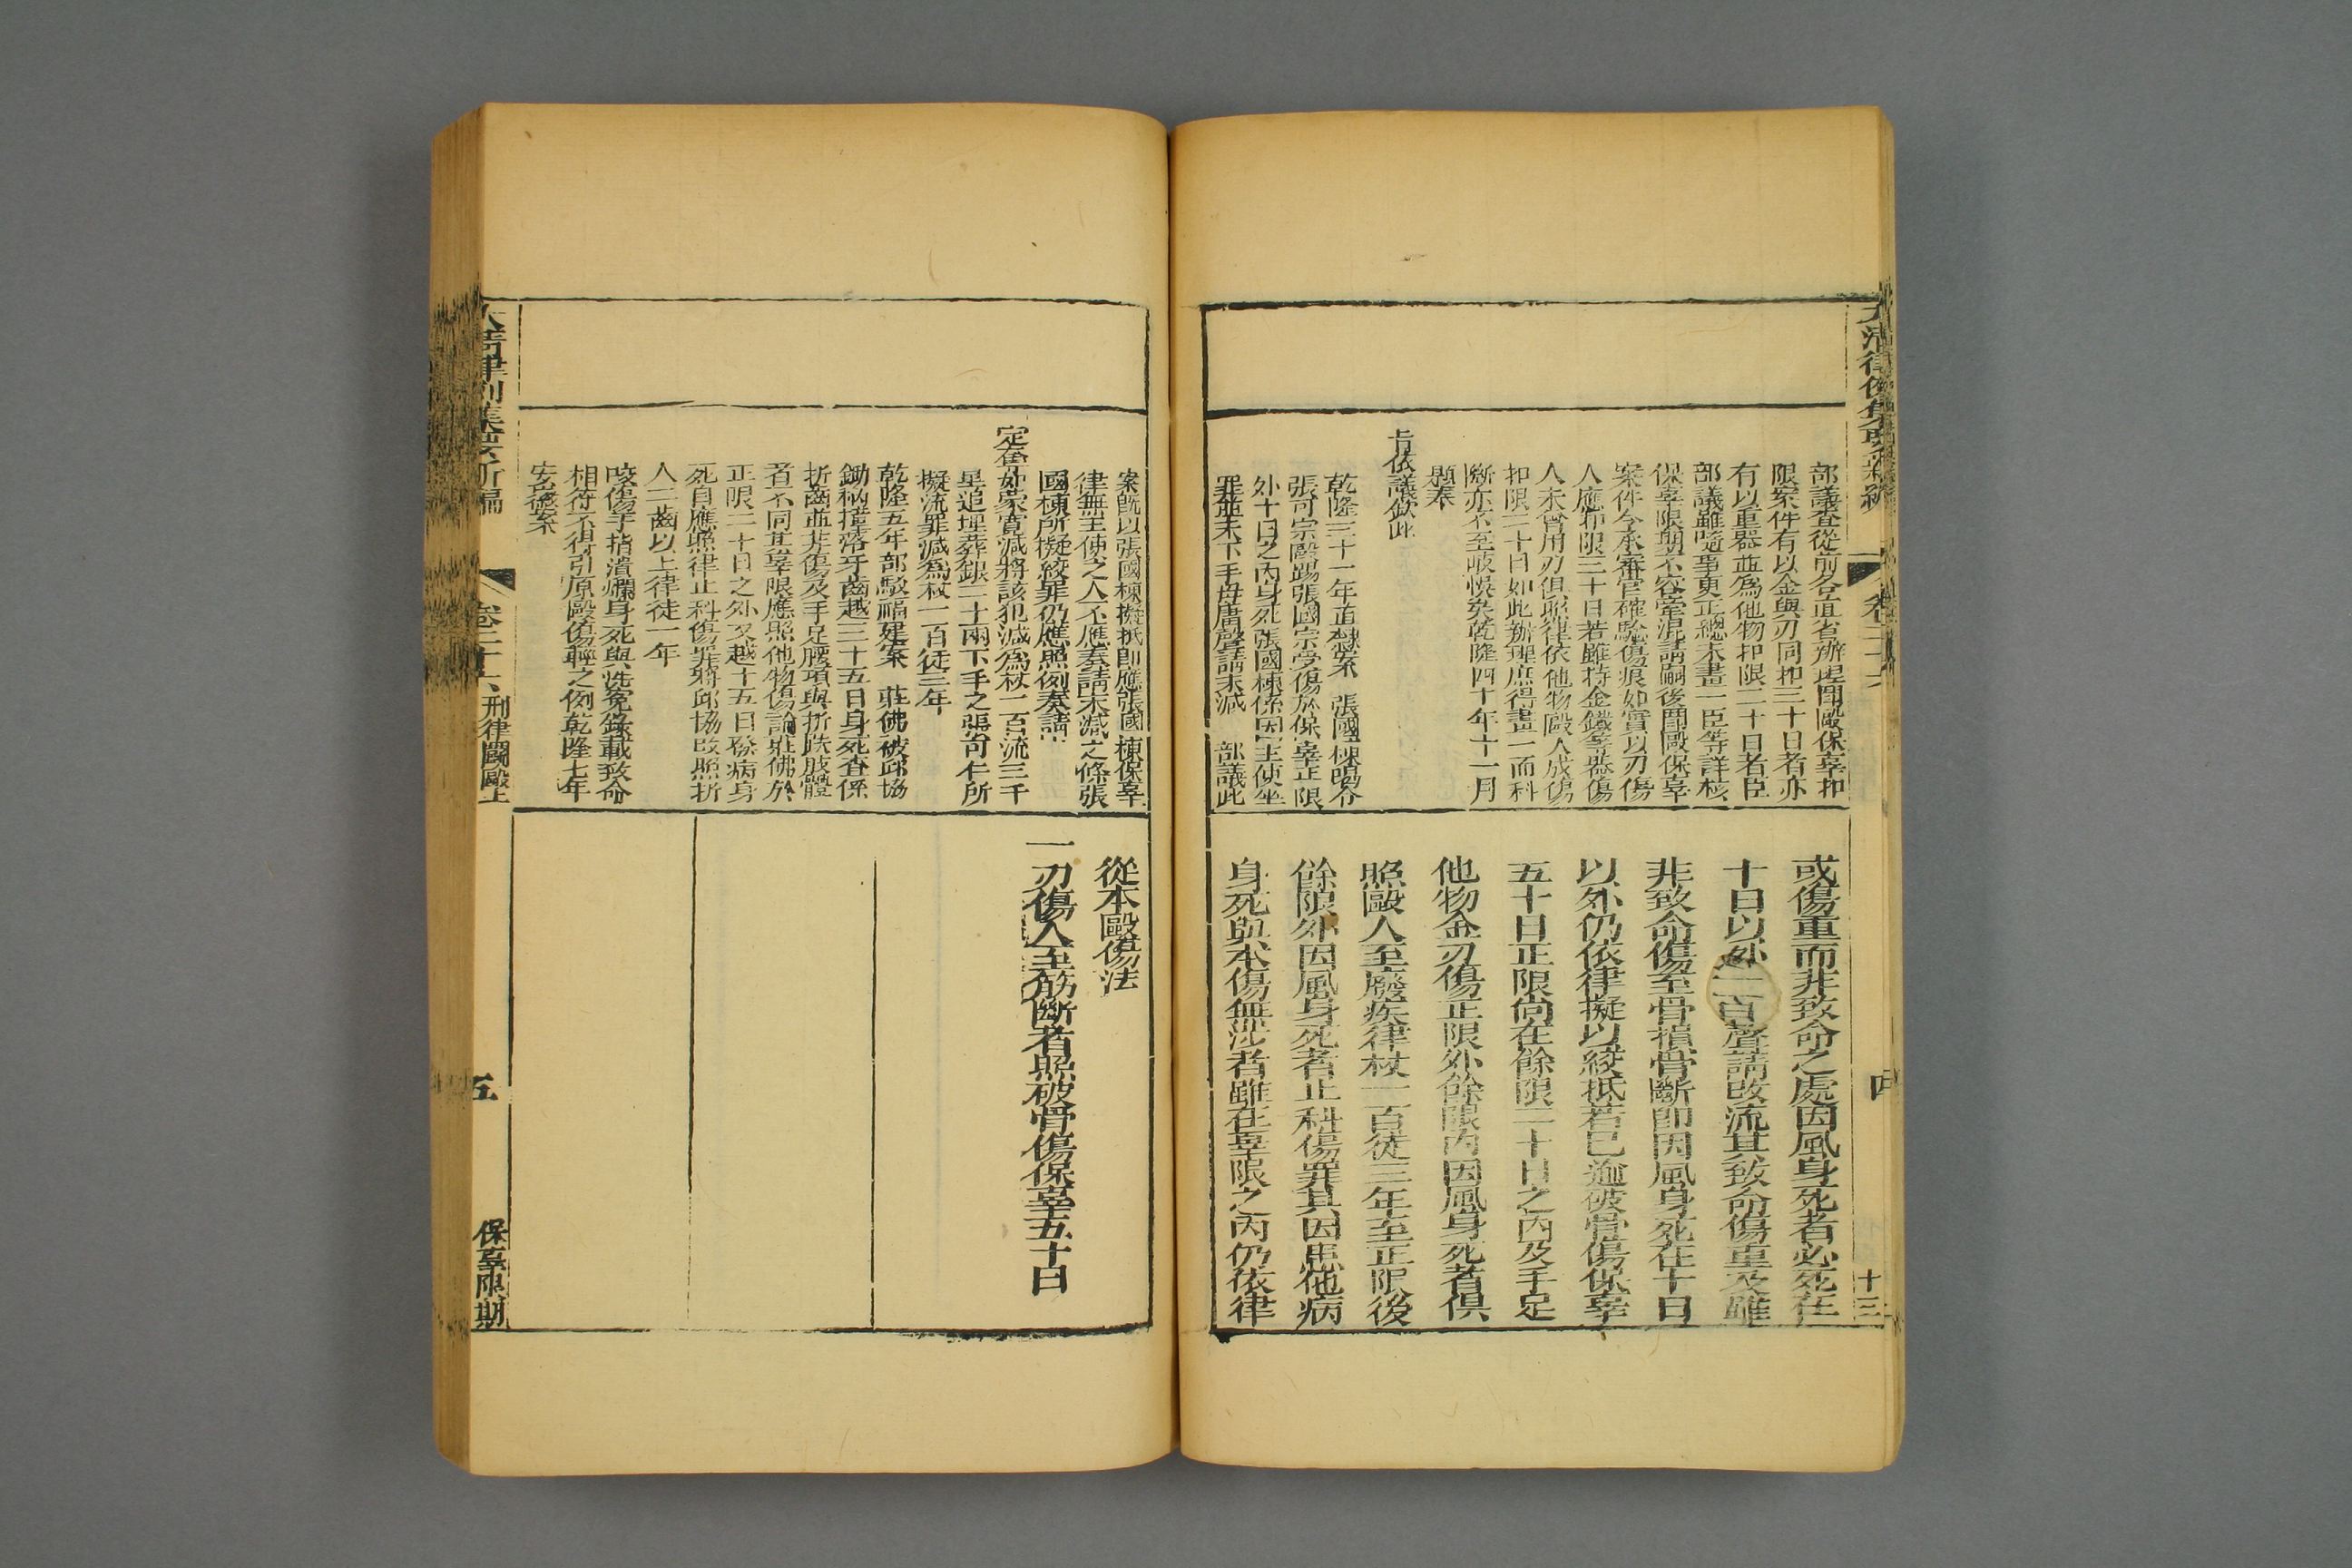 大清律例集要新編
卷二十六
四
十三
部議查從前各直省辦理鬭毆保辜扣
限案件有以金與刃同扣三十日者亦
有以重器並為他物扣限二十日者臣
部議雖隨事更正總未畫一臣等詳核
保辜限期不容牽混請嗣後鬭毆保辜
案件令承審官確驗傷痕如實以刃傷
人應扣限三十日若雖持金鐵等器傷
人未曾用刃俱照律依他物毆人成傷
扣限二十日如此辦理庶得畫一而科
斷亦不至歧悞矣乾隆四十年十一月
題奉
旨依議欽此
乾隆三十一年直隸案 張國棟喝令
張可宗毆踢張國宗受傷於保辜正限
外十日之內身死張國棟係因主使坐
罪並未下手毋庸聲請末減 部議此
或傷重而非致命之處因風身死者必死在
十日以外 聲請改流其致命傷重及雖
非致命傷至骨損骨斷即因風身死在十日
以外仍依律擬以絞抵若已逾破骨傷保辜
五十日正限尚在餘限二十日之內及手足
他物金刃傷正限外餘限內因風身死者俱
照毆人至廢疾律杖一百徒三年至正限後
餘限外因風身死者止科傷罪其因患他病
身死與本傷無涉者雖在辜限之內仍依律
案既以張國棟擬抵即應張國棟保辜
律無主使之人不應奏請末減之條張
國棟所擬絞罪仍應照例奏請
定奪如蒙寬減將該犯減為杖一百流三千
里追埋葬銀二十兩下手之張可仁所
擬流罪減為杖一百徒三年
乾隆五年部駁福建案 莊佛被邱協
鋤柄撞落牙齒越三十五日身死查係
折齒並非傷及手足腰項與折跌肢體
者不同其辜限應照他物傷論莊佛於
正限二十日之外又越十五日染病身
死自應照律止科傷罪將邱協改照折
人二齒以上律徒一年
咬傷手指潰爛身死與洗冤錄載致命
相符不得引原毆傷輕之例乾隆七年
安徽案
從本毆傷法
一刃傷人至筋斷者照破骨傷保辜五十日
大清律例集要新編
卷二十六 刑律鬭毆上
五
保辜限期